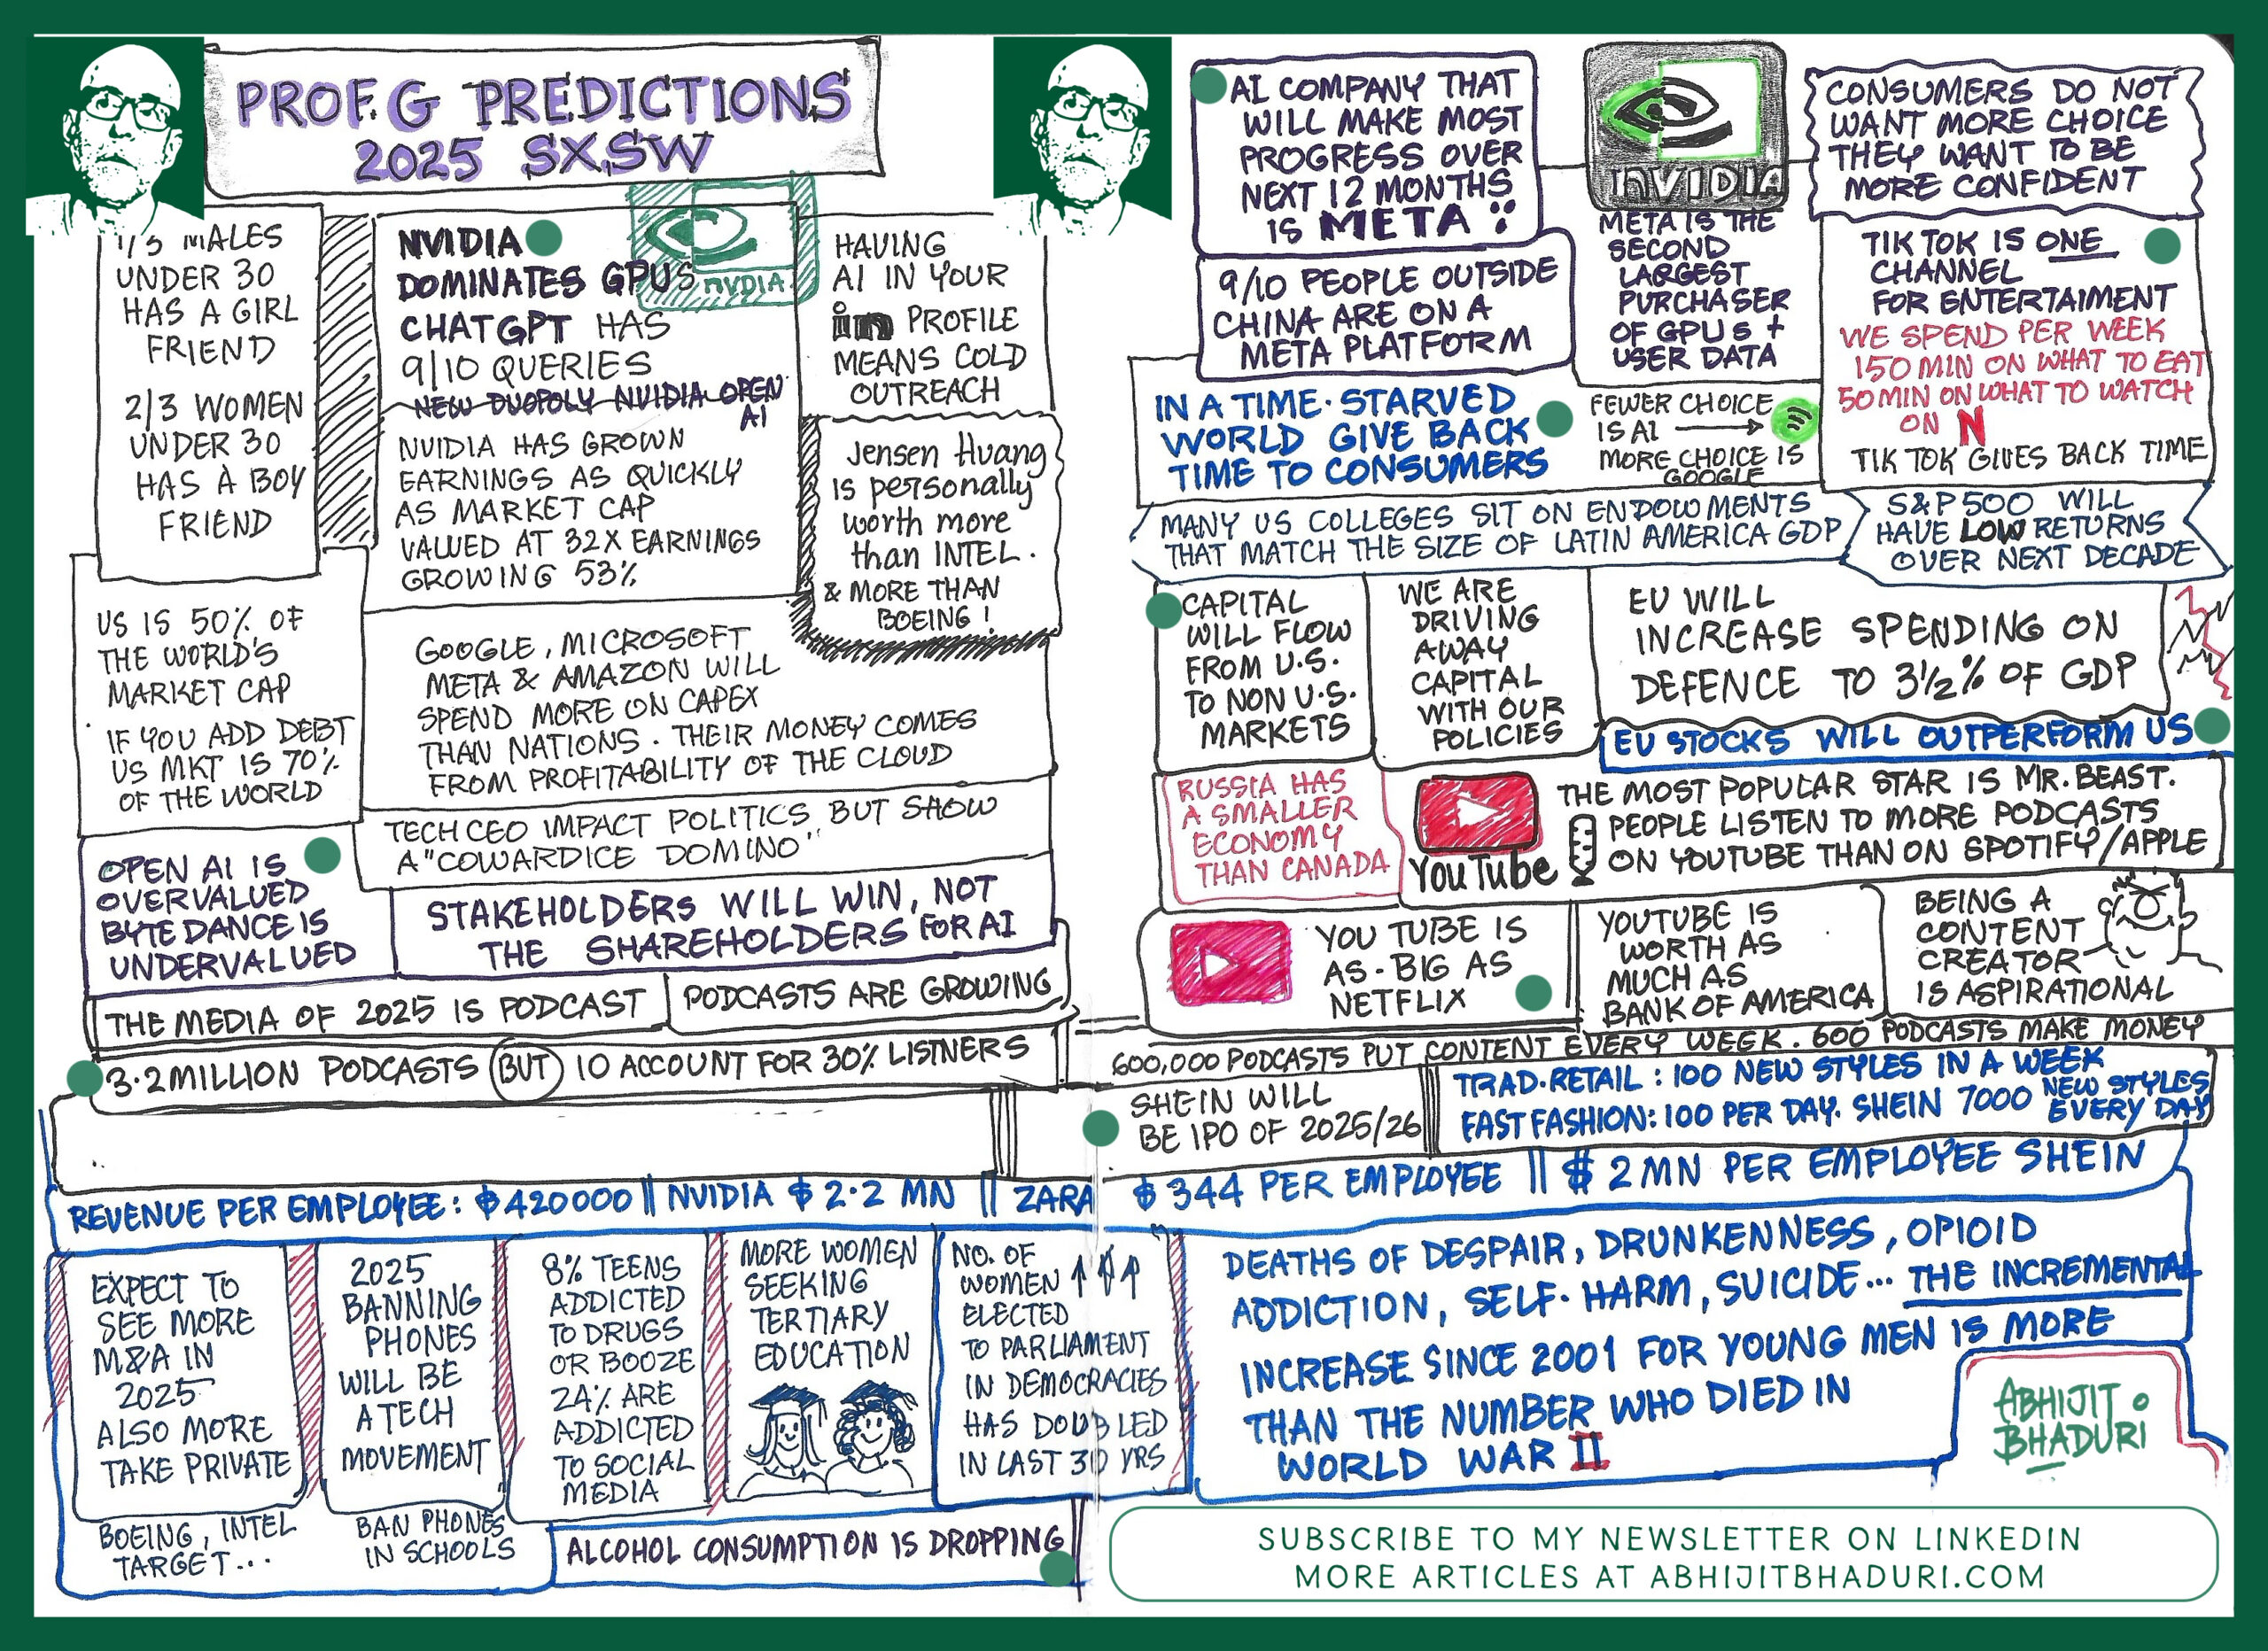 PROF. G PREDICTIONS
2025 SXSW
1/3 MALES
UNDER 30
HAS A GIRL
FRIEND
2/3 WOMEN
UNDER 30
HAS A BOY
FRIEND
NVIDIA
DOMINATES GPUS
nVIDIA
CHATGPT HAS
9/10 QUERIES
NEW DUOPOLY NVIDIA OPEN
AI
NVIDIA HAS GROWN
EARNINGS AS QUICKLY
AS MARKET CAP
VALUED AT 32X EARNINGS
GROWING 53%
HAVING
AI IN YOUR
in PROFILE
MEANS COLD
OUTREACH
Jensen Huang
is personally
worth more
than INTEL.
& MORE THAN
BOEING!
US IS 50% OF
THE WORLD'S
MARKET CAP
IF YOU ADD DEBT
US MKT IS 70%
OF THE WORLD
GOOGLE, MICROSOFT
META & AMAZON WILL
SPEND MORE ON CAPEX
THAN NATIONS. THEIR MONEY COMES
FROM PROFITABILITY OF THE CLOUD
TECH CEO IMPACT POLITICS BUT SHOW
A "COWARDICE DOMINO"
OPEN AI IS
OVERVALUED
BYTE DANCE IS
UNDERVALUED
STAKEHOLDERS WILL WIN, NOT
THE SHAREHOLDERS FOR AI
THE MEDIA OF 2025 IS PODCAST
PODCASTS ARE GROWING
3.2 MILLION PODCASTS BUT 10 ACCOUNT FOR 30% LISTNERS
AI COMPANY THAT
WILL MAKE MOST
PROGRESS OVER
NEXT 12 MONTHS
IS META
9/10 PEOPLE OUTSIDE
CHINA ARE ON A
META PLATFORM
nVIDIA
META IS THE
SECOND
LARGEST
PURCHASER
OF GPUs +
USER DATA
CONSUMERS DO NOT
WANT MORE CHOICE
THEY WANT TO BE
MORE CONFIDENT
TIK TOK IS ONE
CHANNEL
FOR ENTERTAIMENT
WE SPEND PER WEEK
150 MIN ON WHAT TO EAT
50 MIN ON WHAT TO WATCH
ON N
TIK TOK GIVES BACK TIME
IN A TIME-STARVED
WORLD GIVE BACK
TIME TO CONSUMERS
FEWER CHOICE
IS AI
MORE CHOICE IS
GOOGLE
MANY US COLLEGES SIT ON ENDOWMENTS
THAT MATCH THE SIZE OF LATIN AMERICA GDP
S&P 500 WILL
HAVE LOW RETURNS
OVER NEXT DECADE
CAPITAL
WILL FLOW
FROM U.S.
TO NON U.S.
MARKETS
WE ARE
DRIVING
AWAY
CAPITAL
WITH OUR
POLICIES
EU WILL
INCREASE SPENDING ON
DEFENCE TO 3 1/2% OF GDP
EU STOCKS WILL OUTPERFORM US
RUSSIA HAS
A SMALLER
ECONOMY
THAN CANADA
YouTube
THE MOST POPULAR STAR IS MR. BEAST.
PEOPLE LISTEN TO MORE PODCASTS
ON YOUTUBE THAN ON SPOTIFY/APPLE
YOU TUBE IS
AS-BIG AS
NETFLIX
YOUTUBE IS
WORTH AS
MUCH AS
BANK OF AMERICA
BEING A
CONTENT
CREATOR
IS ASPIRATIONAL
600,000 PODCASTS PUT CONTENT EVERY WEEK. 600 PODCASTS MAKE MONEY
SHEIN WILL
BE IPO OF 2025/26
TRAD. RETAIL: 100 NEW STYLES IN A WEEK
FAST FASHION: 100 PER DAY. SHEIN 7000 NEW STYLES
EVERY DAY
REVENUE PER EMPLOYEE: $420000 || NVIDIA $2.2 MN || ZARA $344 PER EMPLOYEE || $2 MN PER EMPLOYEE SHEIN
EXPECT TO
SEE MORE
M&A IN
2025
ALSO MORE
TAKE PRIVATE
BOEING, INTEL
TARGET...
2025
BANNING
PHONES
WILL BE
A TECH
MOVEMENT
BAN PHONES
IN SCHOOLS
8% TEENS
ADDICTED
TO DRUGS
OR BOOZE
24% ARE
ADDICTED
TO SOCIAL
MEDIA
MORE WOMEN
SEEKING
TERTIARY
EDUCATION
NO. OF
WOMEN
ELECTED
TO PARLIAMENT
IN DEMOCRACIES
HAS DOUBLED
IN LAST 30 YRS
ALCOHOL CONSUMPTION IS DROPPING
DEATHS OF DESPAIR, DRUNKENNESS, OPIOID
ADDICTION, SELF-HARM, SUICIDE... THE INCREMENTAL
INCREASE SINCE 2001 FOR YOUNG MEN IS MORE
THAN THE NUMBER WHO DIED IN
WORLD WAR II
ABHIJIT
BHADURI
SUBSCRIBE TO MY NEWSLETTER ON LINKEDIN
MORE ARTICLES AT ABHIJITBHADURI.COM